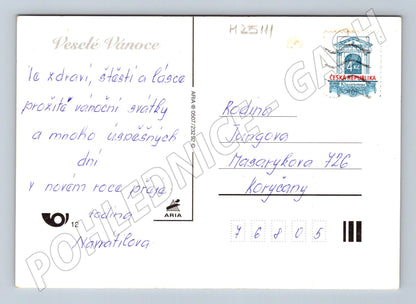 M 235111
Veselé Vánoce
Ve zdraví, štěstí a lásce
prožité vánoční svátky
a mnoho úspěšných
dní
v novém roce přeje
rodina
Navrátilova
12
ARIA
ARIA © 0507/20292 ©
4 Kč
ČESKÁ REPUBLIKA
Rodina
Masarykova 726
Koryčany
7 6 8 0 5
POHLEDNICE - GASH